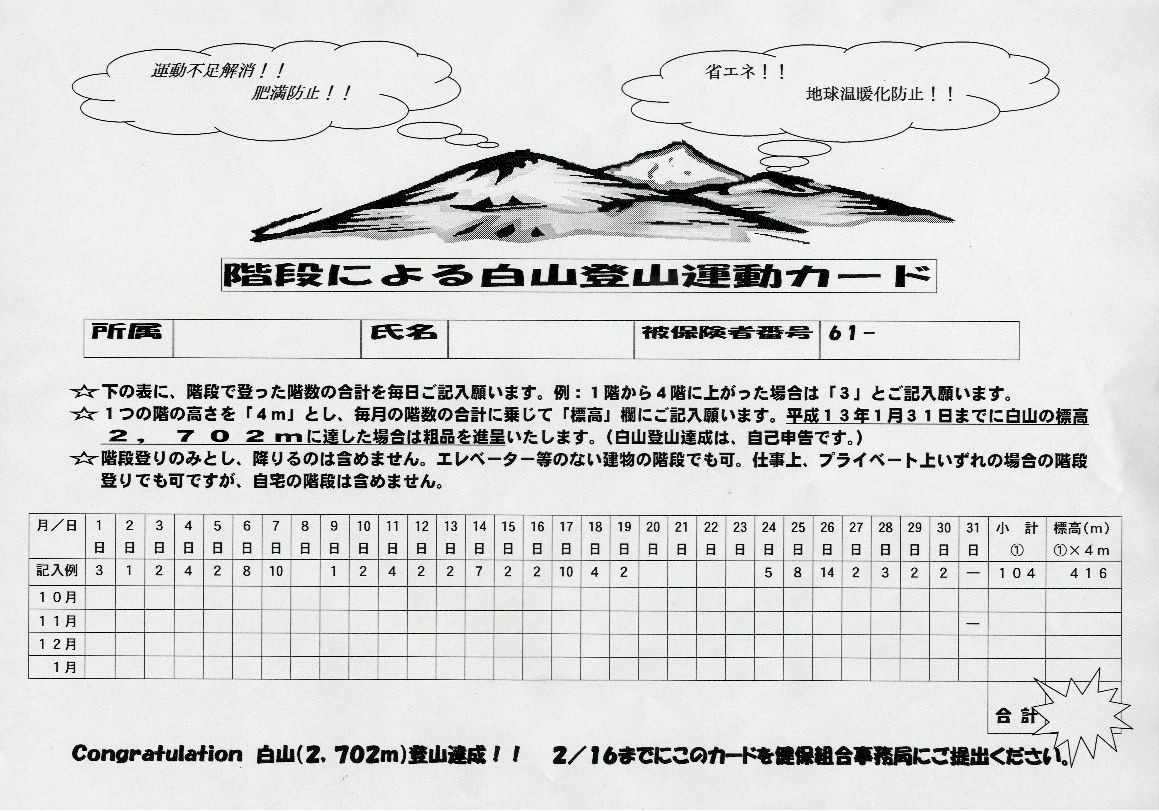 運動不足解消！！
肥満防止！！
省エネ！！
地球温暖化防止！！
階段による白山登山運動カード
所属 氏名 被保険者番号 61-
☆下の表に、階段で登った階数の合計を毎日ご記入願います。例：１階から４階に上がった場合は「３」とご記入願います。
☆１つの階の高さを「４ｍ」とし、毎月の階数の合計に乗じて「標高」欄にご記入願います。平成１３年１月３１日までに白山の標高
２，７０２ｍに達した場合は粗品を進呈いたします。（白山登山達成は、自己申告です。）
☆階段登りのみとし、降りるのは含めません。エレベーター等のない建物の階段でも可。仕事上、プライベート上いずれの場合の階段
登りでも可ですが、自宅の階段は含めません。
月／日 1 2 3 4 5 6 7 8 9 10 11 12 13 14 15 16 17 18 19 20 21 22 23 24 25 26 27 28 29 30 31 小 計 標高(m)
日 日 日 日 日 日 日 日 日 日 日 日 日 日 日 日 日 日 日 日 日 日 日 日 日 日 日 日 日 日 日 ① ①×４ｍ
記入例 3 1 2 4 2 8 10 1 2 4 2 2 7 2 2 10 4 2 5 8 14 2 3 2 2 — １０４ ４１６
１０月
１１月 —
１２月
１月
合 計
Congratulation 白山(2，702m)登山達成！！ 2／16までにこのカードを健保組合事務局にご提出ください。